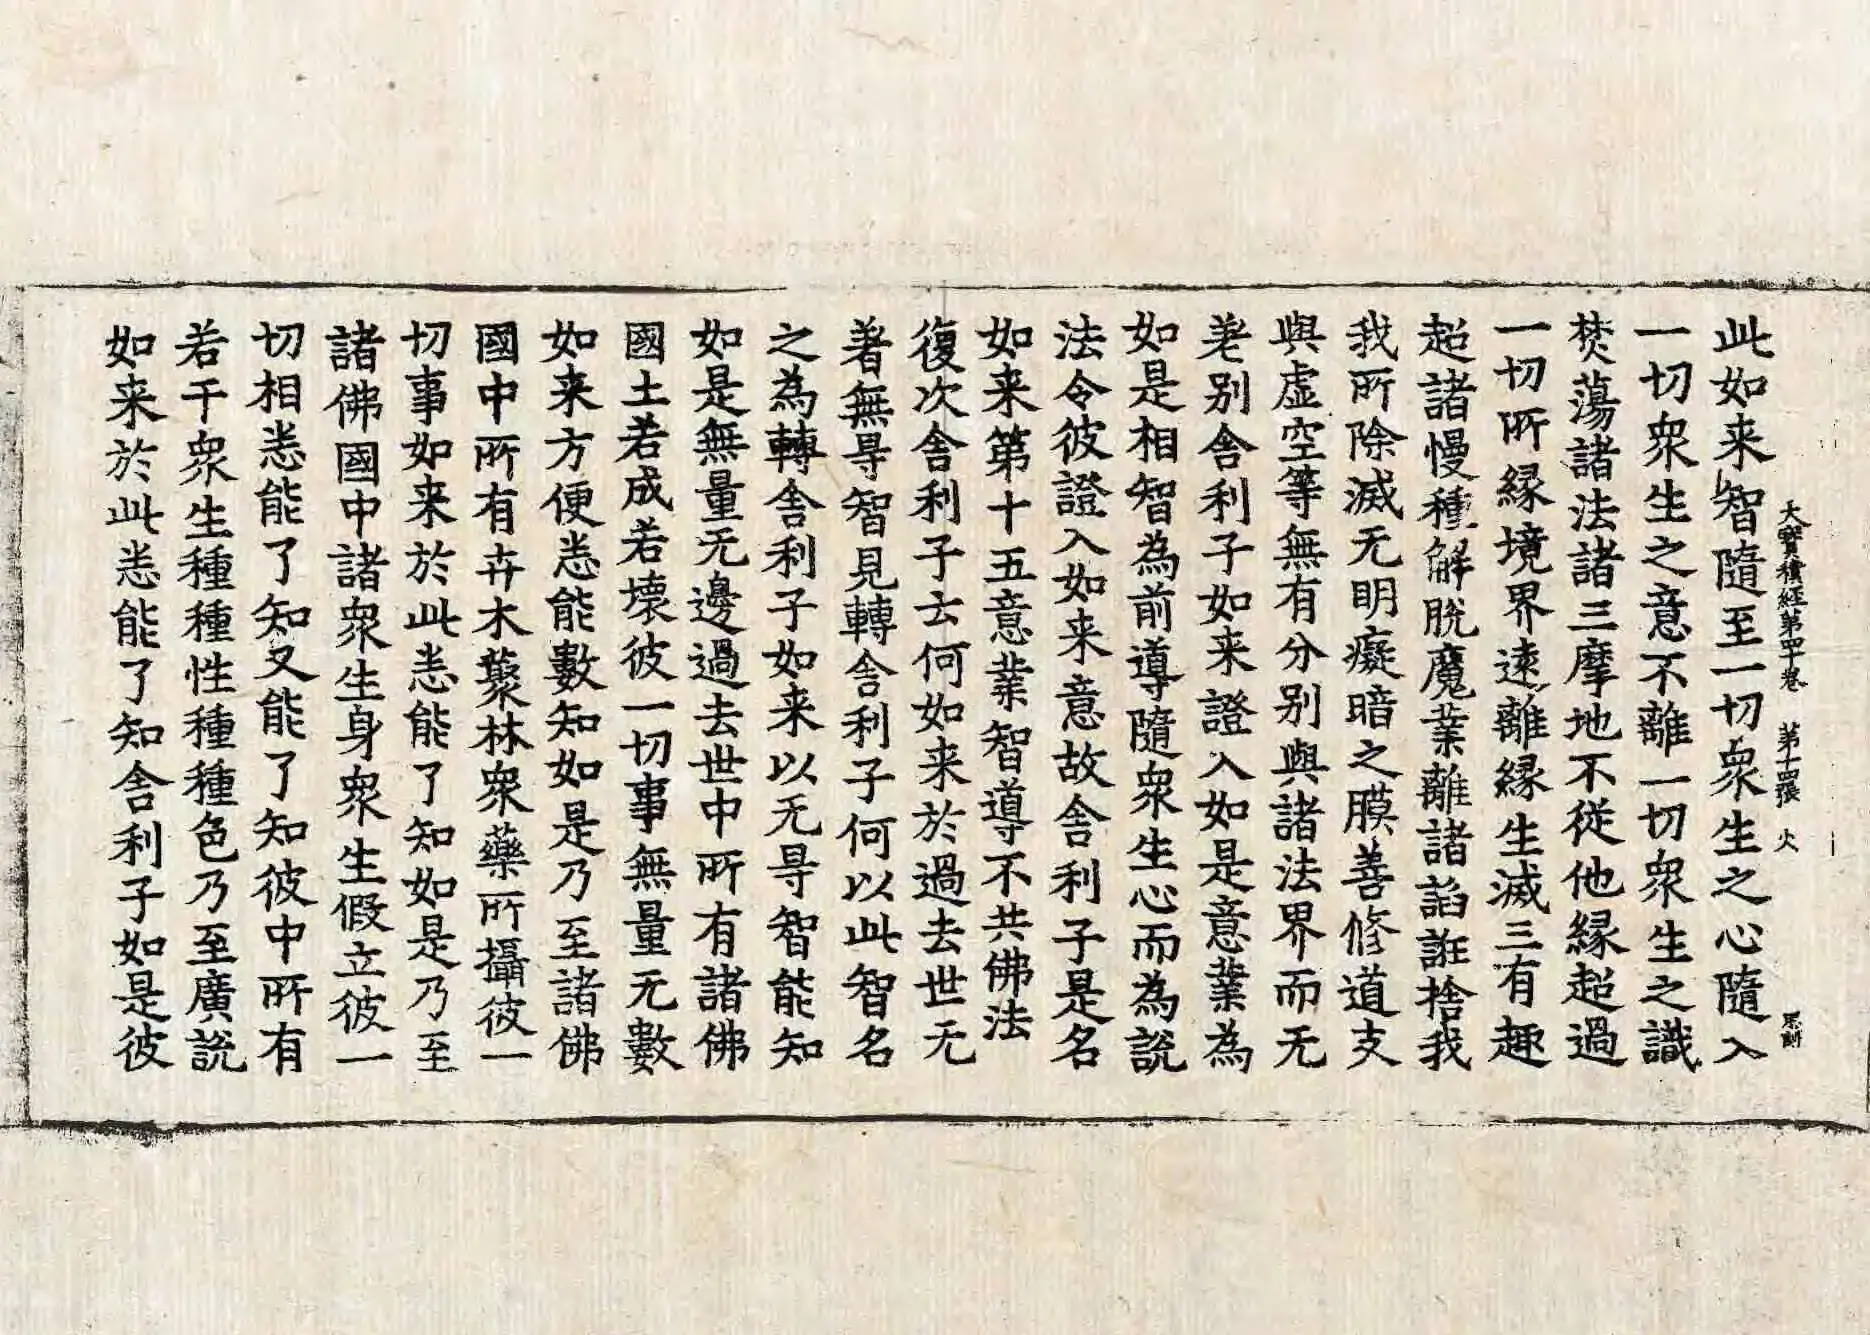 大寳積經第四十卷　第十四張　火　思訓
此如来智隨至一切衆生之心隨入
一切衆生之意不離一切衆生之識
焚蕩諸法諸三摩地不從他緣超過
一切所緣境界遠離緣生滅三有趣
超諸慢種解脫魔業離諸諂誑捨我
我所除滅无明癡暗之膜善修道支
與虛空等無有分別與諸法界而无
差別舍利子如来證入如是意業為
如是相智為前導隨衆生心而為說
法令彼證入如来意故舍利子是名
如来第十五意業智導不共佛法
復次舍利子云何如来於過去世无
著無㝵智見轉舍利子何以此智名
之為轉舍利子如来以无㝵智能知
如是無量无邊過去世中所有諸佛
國土若成若壞彼一切事無量无數
如来方便悉能數知如是乃至諸佛
國中所有卉木藂林衆藥所攝彼一
切事如来於此悉能了知如是乃至
諸佛國中諸衆生身衆生假立彼一
切相悉能了知又能了知彼中所有
若干衆生種種性種種色乃至廣說
如来於此悉能了知舍利子如是彼